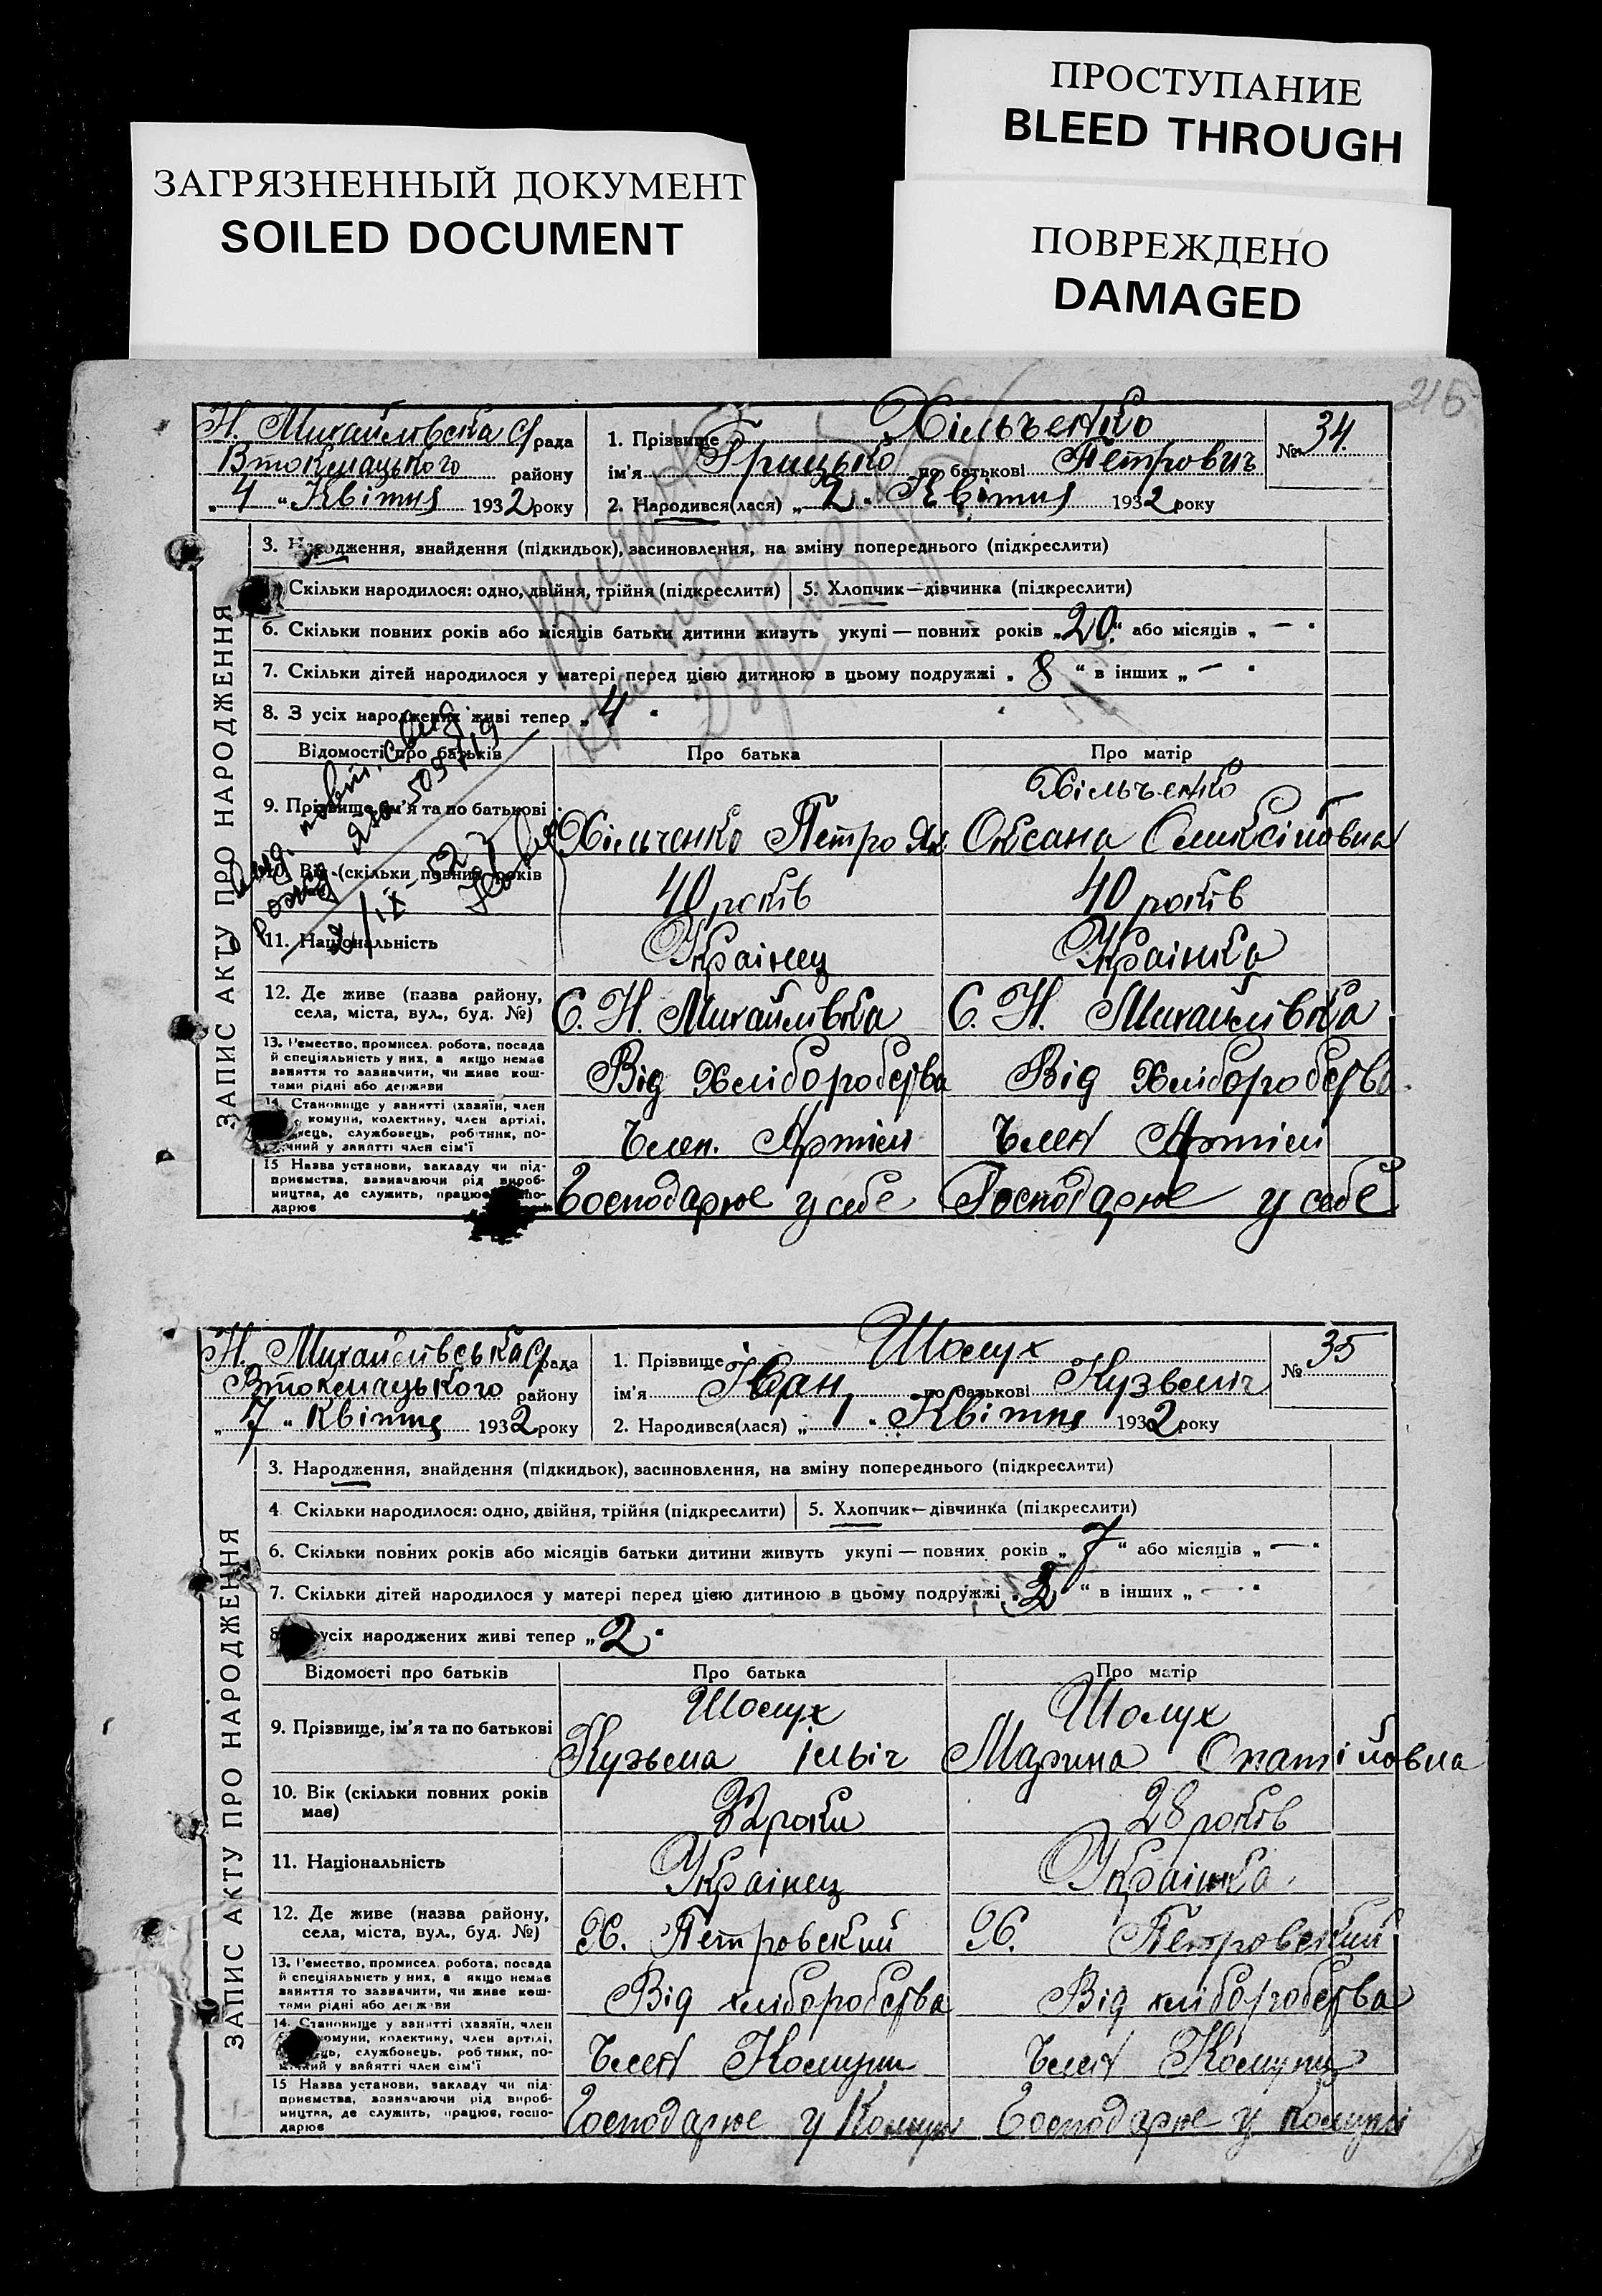 ПРОСТУПАНИЕ
BLEED THROUGH
ЗАГРЯЗНЕННЫЙ ДОКУМЕНТ
SOILED DOCUMENT
ПОВРЕЖДЕНО
DAMAGED
215
Н. Михайловська С/рада
Втокмацького району
„4“ Квітня 1932 року
1. Прізвище Хільченко
ім'я Грицько по батькові Петрович
2. Народився(лася) „2“ Квітня 1932 року
№ 34.
ЗАПИС АКТУ ПРО НАРОДЖЕННЯ
3. Народження, знайдення (підкидьок), засиновлення, на зміну попереднього (підкреслити)
Скільки народилося: одно, двійня, трійня (підкреслити) 5. Хлопчик—дівчинка (підкреслити)
6. Скільки повних років або місяців батьки дитини живуть укупі — повних років „20“ або місяців „—“
7. Скільки дітей народилося у матері перед цією дитиною в цьому подружжі „8“ в інших „—“
8. З усіх народжених живі тепер „4“
Відомості про батьків Про батька Про матір
9. Прізвище, ім'я та по батькові
Хільченко Петро Як
Хільченко
Оксана Оликсіповна
10. Вік (скільки повних років 40 років 40 років
11. Національність Украінец Украінка
12. Де живе (назва району, села, міста, вул., буд. №) С. Н. Михайлівка С. Н. Михайлівка
13. Ремество, промисел. робота, посада
й спеціяльність у них, а якщо немає
заняття то зазначити, чи живе кош-
тами рідні або держави
Від хліборобства Від хліборобства
14. Становище у занятті (хазяїн, член
комуни, колективу, член артілі,
службовець, робітник, по-
у занятті член сім'ї
Член. Артілі Член Артілі
15 Назва установи, закладу чи під-
приємства, зазначаючи рід вироб-
ництва, де служить, працює,
дарює
Господарює у себе Господарює у себе
2/IX-52
Н. Михайлівська С/рада
Втокмацького району
„7“ Квітня 1932 року
1. Прізвище Шолух
ім'я Іван по батькові Кузьміч
2. Народився(лася) „1“ Квітня 1932 року
№ 35
ЗАПИС АКТУ ПРО НАРОДЖЕННЯ
3. Народження, знайдення (підкидьок), засиновлення, на зміну попереднього (підкреслити)
4. Скільки народилося: одно, двійня, трійня (підкреслити) 5. Хлопчик—дівчинка (підкреслити)
6. Скільки повних років або місяців батьки дитини живуть укупі — повних років „7“ або місяців „—“
7. Скільки дітей народилося у матері перед цією дитиною в цьому подружжі „2“ в інших „—“
усіх народжених живі тепер „2“
Відомості про батьків Про батька Про матір
9. Прізвище, ім'я та по батькові
Шолух
Кузьма Ільіч
Шолух
Марина
10. Вік (скільки повних років має) 32 роки 28 років
11. Національність Украінец Украінка
12. Де живе (назва району, села, міста, вул., буд. №) Х. Петровский Х. Петровский
13. Ремество, промисел. робота, посада
й спеціяльність у них, а якщо немає
заняття то зазначити, чи живе кош-
тами рідні або держави
Від хліборобства Від хліборобства
14. Становище у занятті (хазяїн, член
комуни, колективу, член артілі,
службовець, робітник, по-
у занятті член сім'ї
Член Комуни Член Комуни
15 Назва установи, закладу чи під-
приємства, зазначаючи рід вироб-
ництва, де служить, працює, госпо-
дарює
Господарює у Комуні Господарює у комуні